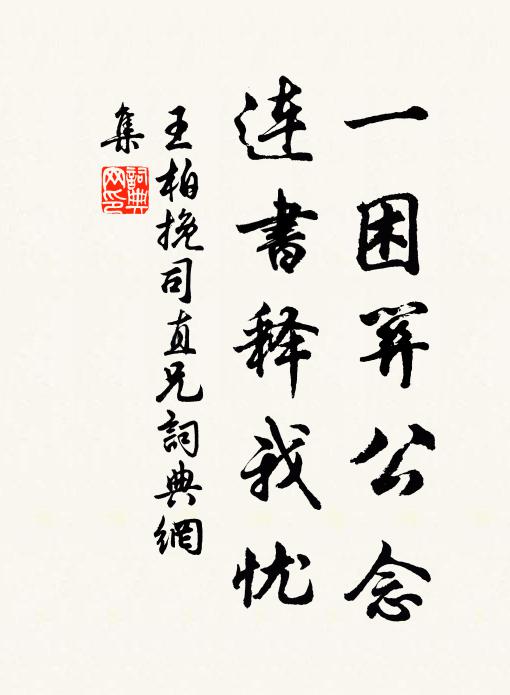 一困关公念
連書释我忧
王柏挽司直兄詞典網
集
詞典
网印